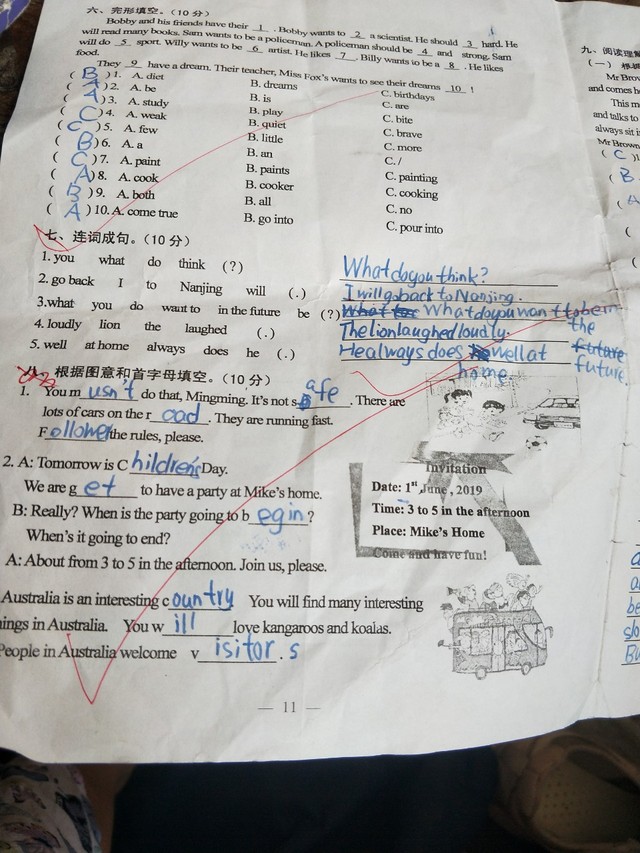 六、完形填空。(10 分)
Bobby and his friends have their 1 . Bobby wants to 2 a scientist. He should 3 hard. He
will read many books. Sam wants to be a policeman. A policeman should be 4 and strong. Sam
will do 5 sport. Willy wants to be 6 artist. He likes 7 . Billy wants to be a 8 . He likes
food.
They 9 have a dream. Their teacher, Miss Fox's wants to see their dreams 10 !
( B ) 1. A. diet B. dreams C. birthdays
( A ) 2. A. be B. is C. are
( A ) 3. A. study B. play C. bite
( C ) 4. A. weak B. quiet C. brave
( C ) 5. A. few B. little C. more
( B ) 6. A. a B. an C. /
( C ) 7. A. paint B. paints C. painting
( A ) 8. A. cook B. cooker C. cooking
( B ) 9. A. both B. all C. no
( A ) 10. A. come true B. go into C. pour into
七、连词成句。(10 分)
1. you what do think (?) What do you think?
2. go back I to Nanjing will (.) I will go back to Nanjing.
3.what you do want to in the future be (?) What do you want to be in
the future
future.
4. loudly lion the laughed (.) The lion laughed loudly.
5. well at home always does he (.) He always does well at
home.
八、根据图意和首字母填空。(10 分)
1. You m usn't do that, Mingming. It's not s afe . There are
lots of cars on the r oad . They are running fast.
F ollower the rules, please.
2. A: Tomorrow is C hildren's Day.
We are g et to have a party at Mike's home.
B: Really? When is the party going to b egin ?
When's it going to end?
A: About from 3 to 5 in the afternoon. Join us, please.
Invitation
Date: 1st ,June , 2019
Time: 3 to 5 in the afternoon
Place: Mike's Home
Come and have fun!
Australia is an interesting c ountry You will find many interesting
ings in Australia. You w ill love kangaroos and koalas.
People in Australia welcome v isitor.s
— 11 —
九、阅读理解
(一) 根据
Mr Brown
and comes h
This m
and talks to
always sit i
Mr Brown
( C )
( B
( A
(
(